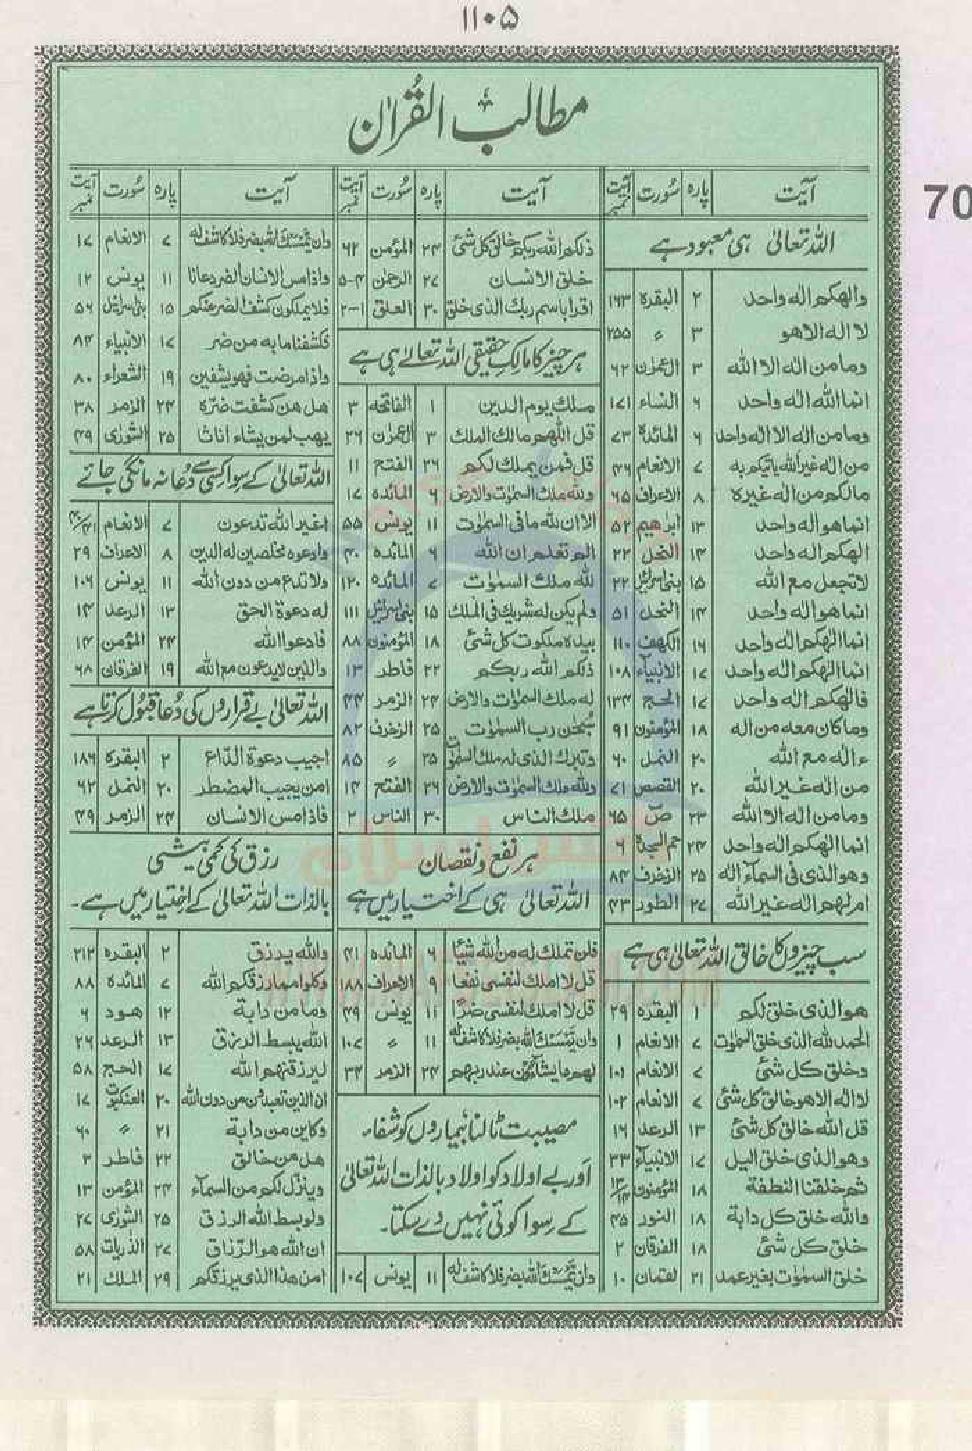 ۱۱۰۵
70
مطالب القرآن
آیت پارہ سورت آیت نمبر
اللہ تعالیٰ ہی معبود ہے
والهكم اله واحد ۲ البقرہ ۱۶۳
لا اله الا هو ۳ 〃 ۲۵۵
وما من اله الا الله ۳ آل عمرٰن ۶۲
انما الله اله واحد ۶ النساء ۱۷۱
وما من اله الا اله واحد ۶ المائدۃ ۷۳
من اله غير الله ياتيكم به ۷ الانعام ۴۶
مالكم من اله غيره ۸ الاعراف ۶۵
انما هو اله واحد ۱۳ ابرٰھیم ۵۲
الهكم اله واحد ۱۴ النحل ۲۲
لا تجعل مع الله ۱۵ بنی اسرائیل ۲۲
انما هو اله واحد ۱۴ النحل ۵۱
انما الهكم اله واحد ۱۶ الکہف ۱۱۰
انما الهكم اله واحد ۱۷ الانبیآء ۱۰۸
فالهكم اله واحد ۱۷ الحج ۳۴
وما كان معه من اله ۱۸ المؤمنون ۹۱
ءاله مع الله ۲۰ النمل ۶۰
من اله غير الله ۲۰ القصص ۷۱
وما من اله الا الله ۲۳ صٓ ۶۵
انما الهكم اله واحد ۲۴ حم السجدۃ ۶
وهو الذى فى السمآء اله ۲۵ الزخرف ۸۴
ام لهم اله غير الله ۲۷ الطور ۴۳
سب چیزوں کا خالق اللہ تعالیٰ ہی ہے
هو الذى خلق لكم ۱ البقرہ ۲۹
الحمد لله الذى خلق السمٰوٰت ۷ الانعام ۱
وخلق كل شئ ۷ الانعام ۱۰۱
لا اله الا هو خالق كل شئ ۷ الانعام ۱۰۲
قل الله خالق كل شئ ۱۳ الرعد ۱۶
وهو الذى خلق اليل ۱۷ الانبیآء ۳۳
ثم خلقنا النطفة ۱۸ المؤمنون ۱۳/۱۴
والله خلق كل دابة ۱۸ النور ۴۵
خلق كل شئ ۱۸ الفرقان ۲
خلق السمٰوٰت بغير عمد ۲۱ لقمان ۱۰
آیت پارہ سورت آیت نمبر
ذلكم الله ربكم خالق كل شئ ۲۴ المؤمن ۶۲
خلق الانسان ۲۷ الرحمٰن ۳-۵
اقرا باسم ربك الذى خلق ۳۰ العلق ۱-۲
ہر چیز کا مالک حقیقی اللہ تعالےٰ ہی ہے
ملك يوم الدين ۱ الفاتحہ ۳
قل اللهم مالك الملك ۳ آل عمرٰن ۲۶
قل فمن يملك لكم ۲۶ الفتح ۱۱
ولله ملك السمٰوٰت والارض ۶ المائدہ ۱۷
الا ان لله ما فى السمٰوٰت ۱۱ یونس ۵۵
الم تعلم ان الله ۶ المائدہ ۴۰
لله ملك السمٰوٰت ۷ المائدہ ۱۲۰
ولم يكن له شريك فى الملك ۱۵ بنی اسرائیل ۱۱۱
بيده ملكوت كل شئ ۱۸ المؤمنون ۸۸
ذلكم الله ربكم ۲۲ فاطر ۱۳
له ملك السمٰوٰت والارض ۲۴ الزمر ۴۴
سبحٰن رب السمٰوٰت ۲۵ الزخرف ۸۲
وتبرك الذى له ملك السمٰوٰت ۲۵ 〃 ۸۵
ولله ملك السمٰوٰت والارض ۲۶ الفتح ۱۴
ملك الناس ۳۰ الناس ۲
ہر نفع و نقصان
اللہ تعالیٰ ہی کے اختیار میں ہے
فلن تملك له من الله شيئا ۶ المائدہ ۴۱
قل لا املك لنفسى نفعا ۹ الاعراف ۱۸۸
قل لا املك لنفسى ضرّا ۱۱ یونس ۴۹
وان يمسسك الله بضر فلا كاشف له ۱۱ 〃 ۱۰۷
لهم ما يشآءون عند ربهم ۲۴ الزمر ۳۴
مصیبت ٹالنا، بیماروں کو شفاء
اور بے اولاد کو اولاد بالذات اللہ تعالیٰ
کے سوا کوئی نہیں دے سکتا۔
وان يمسسك الله بضر فلا كاشف له ۱۱ یونس ۱۰۷
آیت پارہ سورت آیت نمبر
وان يمسسك الله بضر فلا كاشف له ۷ الانعام ۱۷
واذا مس الانسان الضر دعانا ۱۱ یونس ۱۲
فلا يملكون كشف الضر عنكم ۱۵ بنی اسرائیل ۵۶
فكشفنا ما به من ضر ۱۷ الانبیاء ۸۴
واذا مرضت فهو يشفين ۱۹ الشعراء ۸۰
هل هن كشفت ضره ۲۴ الزمر ۳۸
يهب لمن يشاء اناثا ۲۵ الشورٰی ۴۹
اللہ تعالیٰ کے سوا کسی سے دُعا نہ مانگی جائے
اغير الله تدعون ۷ الانعام ۴۰/۴۱
وادعوه مخلصين له الدين ۸ الاعراف ۲۹
ولا تدع من دون الله ۱۱ یونس ۱۰۶
له دعوة الحق ۱۳ الرعد ۱۴
فادعوا الله ۲۴ المؤمن ۱۴
والذين لا يدعون مع الله ۱۹ الفرقان ۶۸
اللہ تعالیٰ بے قراروں کی دُعا قبول کرتا ہے
اجيب دعوة الداع ۲ البقرہ ۱۸۶
امن يجيب المضطر ۲۰ النمل ۶۲
فاذا مس الانسان ۲۴ الزمر ۴۹
رزق کی کمی بیشی
بالذات اللہ تعالیٰ کے اختیار میں ہے۔
والله يرزق ۲ البقرہ ۲۱۲
وكلوا مما رزقكم الله ۷ المائدہ ۸۸
وما من دابة ۱۲ ھود ۶
الله يبسط الرزق ۱۳ الرعد ۲۶
ليرزقنهم الله ۱۷ الحج ۵۸
ان الذين تعبدون من دون الله ۲۰ العنکبوت ۱۷
وكاين من دابة ۲۱ 〃 ۶۰
هل من خالق ۲۲ فاطر ۳
وينزل لكم من السمآء ۲۴ المؤمن ۱۳
ولو بسط الله الرزق ۲۵ الشورٰی ۲۷
ان الله هو الرزاق ۲۷ الذریات ۵۸
امن هذا الذى يرزقكم ۲۹ الملک ۲۱